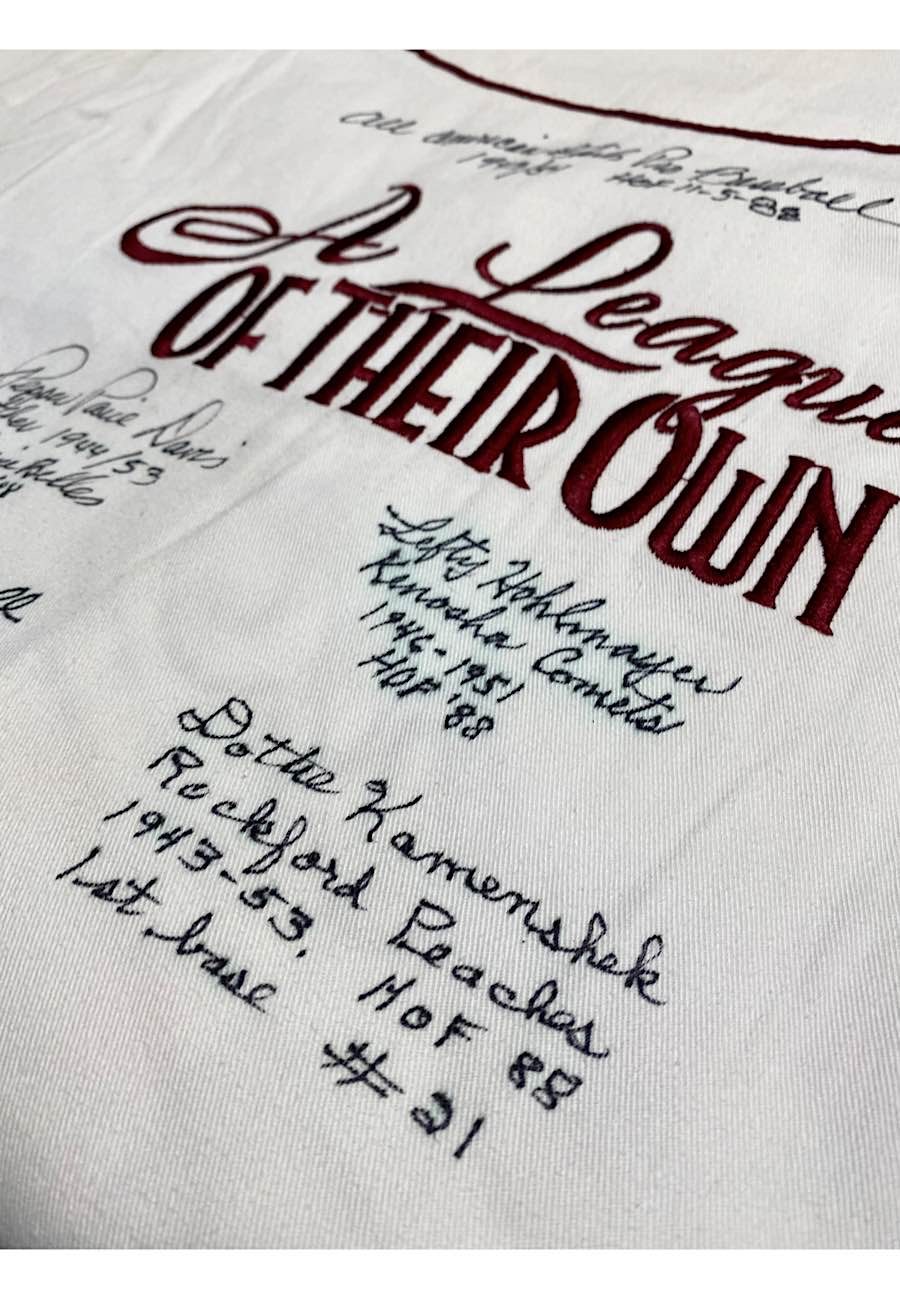 All American Girls Pro Baseball
HOF 11-5-88
A League
OF THEIR OWN
Pepper Paire Davis
1944/53
Belles
Lefty Hohlmayer
Kenosha Comets
1946-1951
HOF '88
Dottie Kamenshek
Rockford Peaches
1943-53, HOF 88
1st base #21